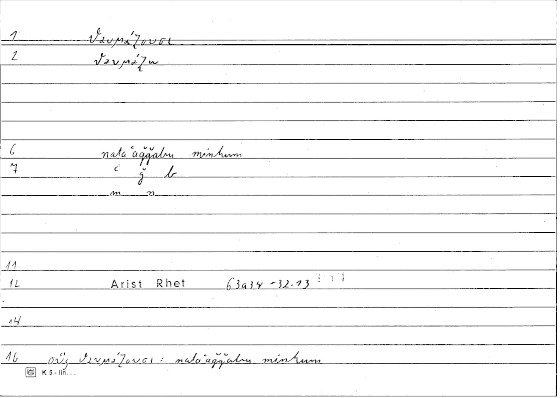 1 θαυμάζουσι
2 θαυμάζω
6 nataʿaǧǧabu minhum
7 ʿ ǧ b
m n
11
12 Arist Rhet 63a34-32.13
14
16 θαυμάζουσι : nataʿaǧǧabu minhum
K 5-lin...